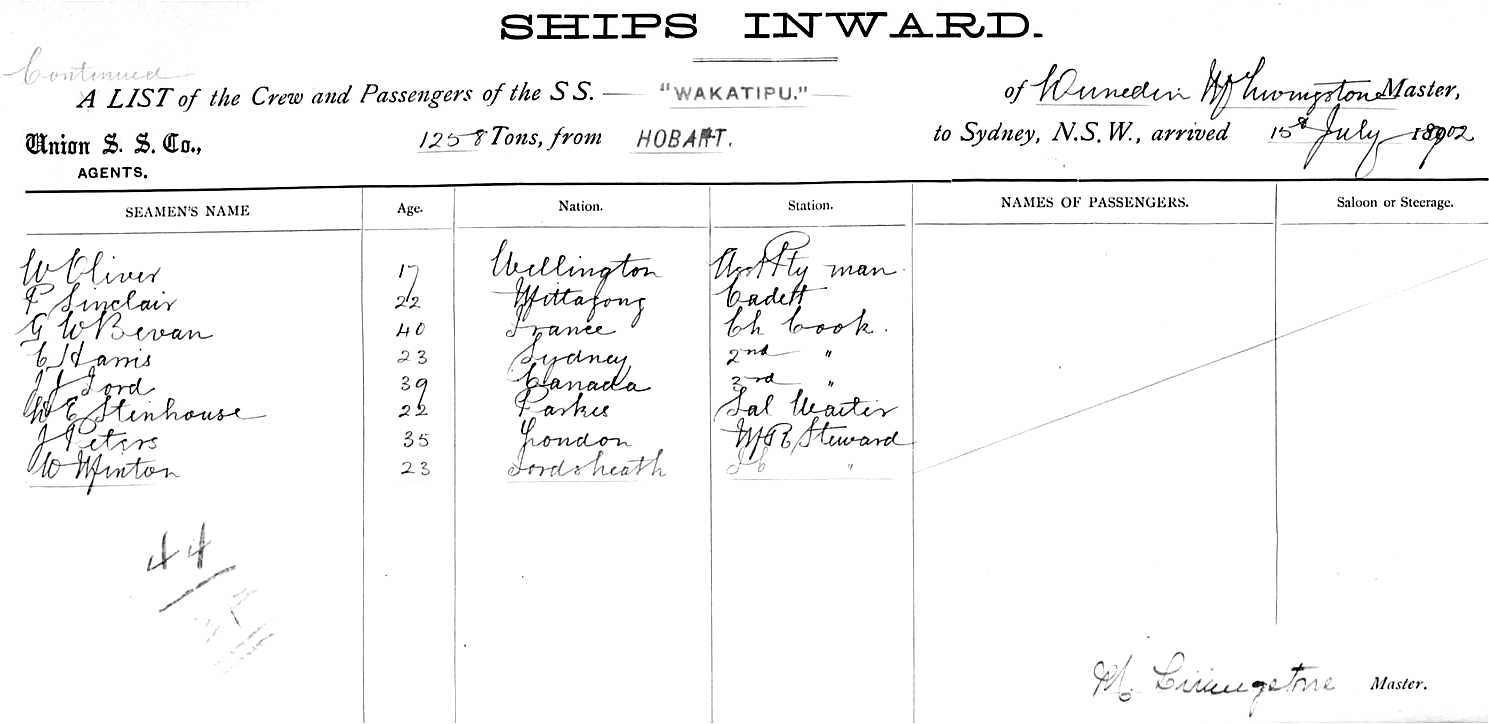 SHIPS INWARD.
Continued
A LIST of the Crew and Passengers of the S S. "WAKATIPU." of Dunedin Livingstone Master,
Union S. S. Co., 1258 Tons, from HOBART. to Sydney, N.S.W., arrived 15th July 1902
AGENTS.
SEAMEN'S NAME Age. Nation. Station. NAMES OF PASSENGERS. Saloon or Steerage.
W Oliver 17 Wellington man
P Sinclair 22 Mittagong Cadett
G W Bevan 40 France Ch Cook.
C Harris 23 Sydney 2nd "
J J Ford 39 Canada 3rd "
W E Stenhouse 22 Parkes Sal Waiter
J Peters 35 London Steward
W Minton 23 "
44
M. Livingstone Master.